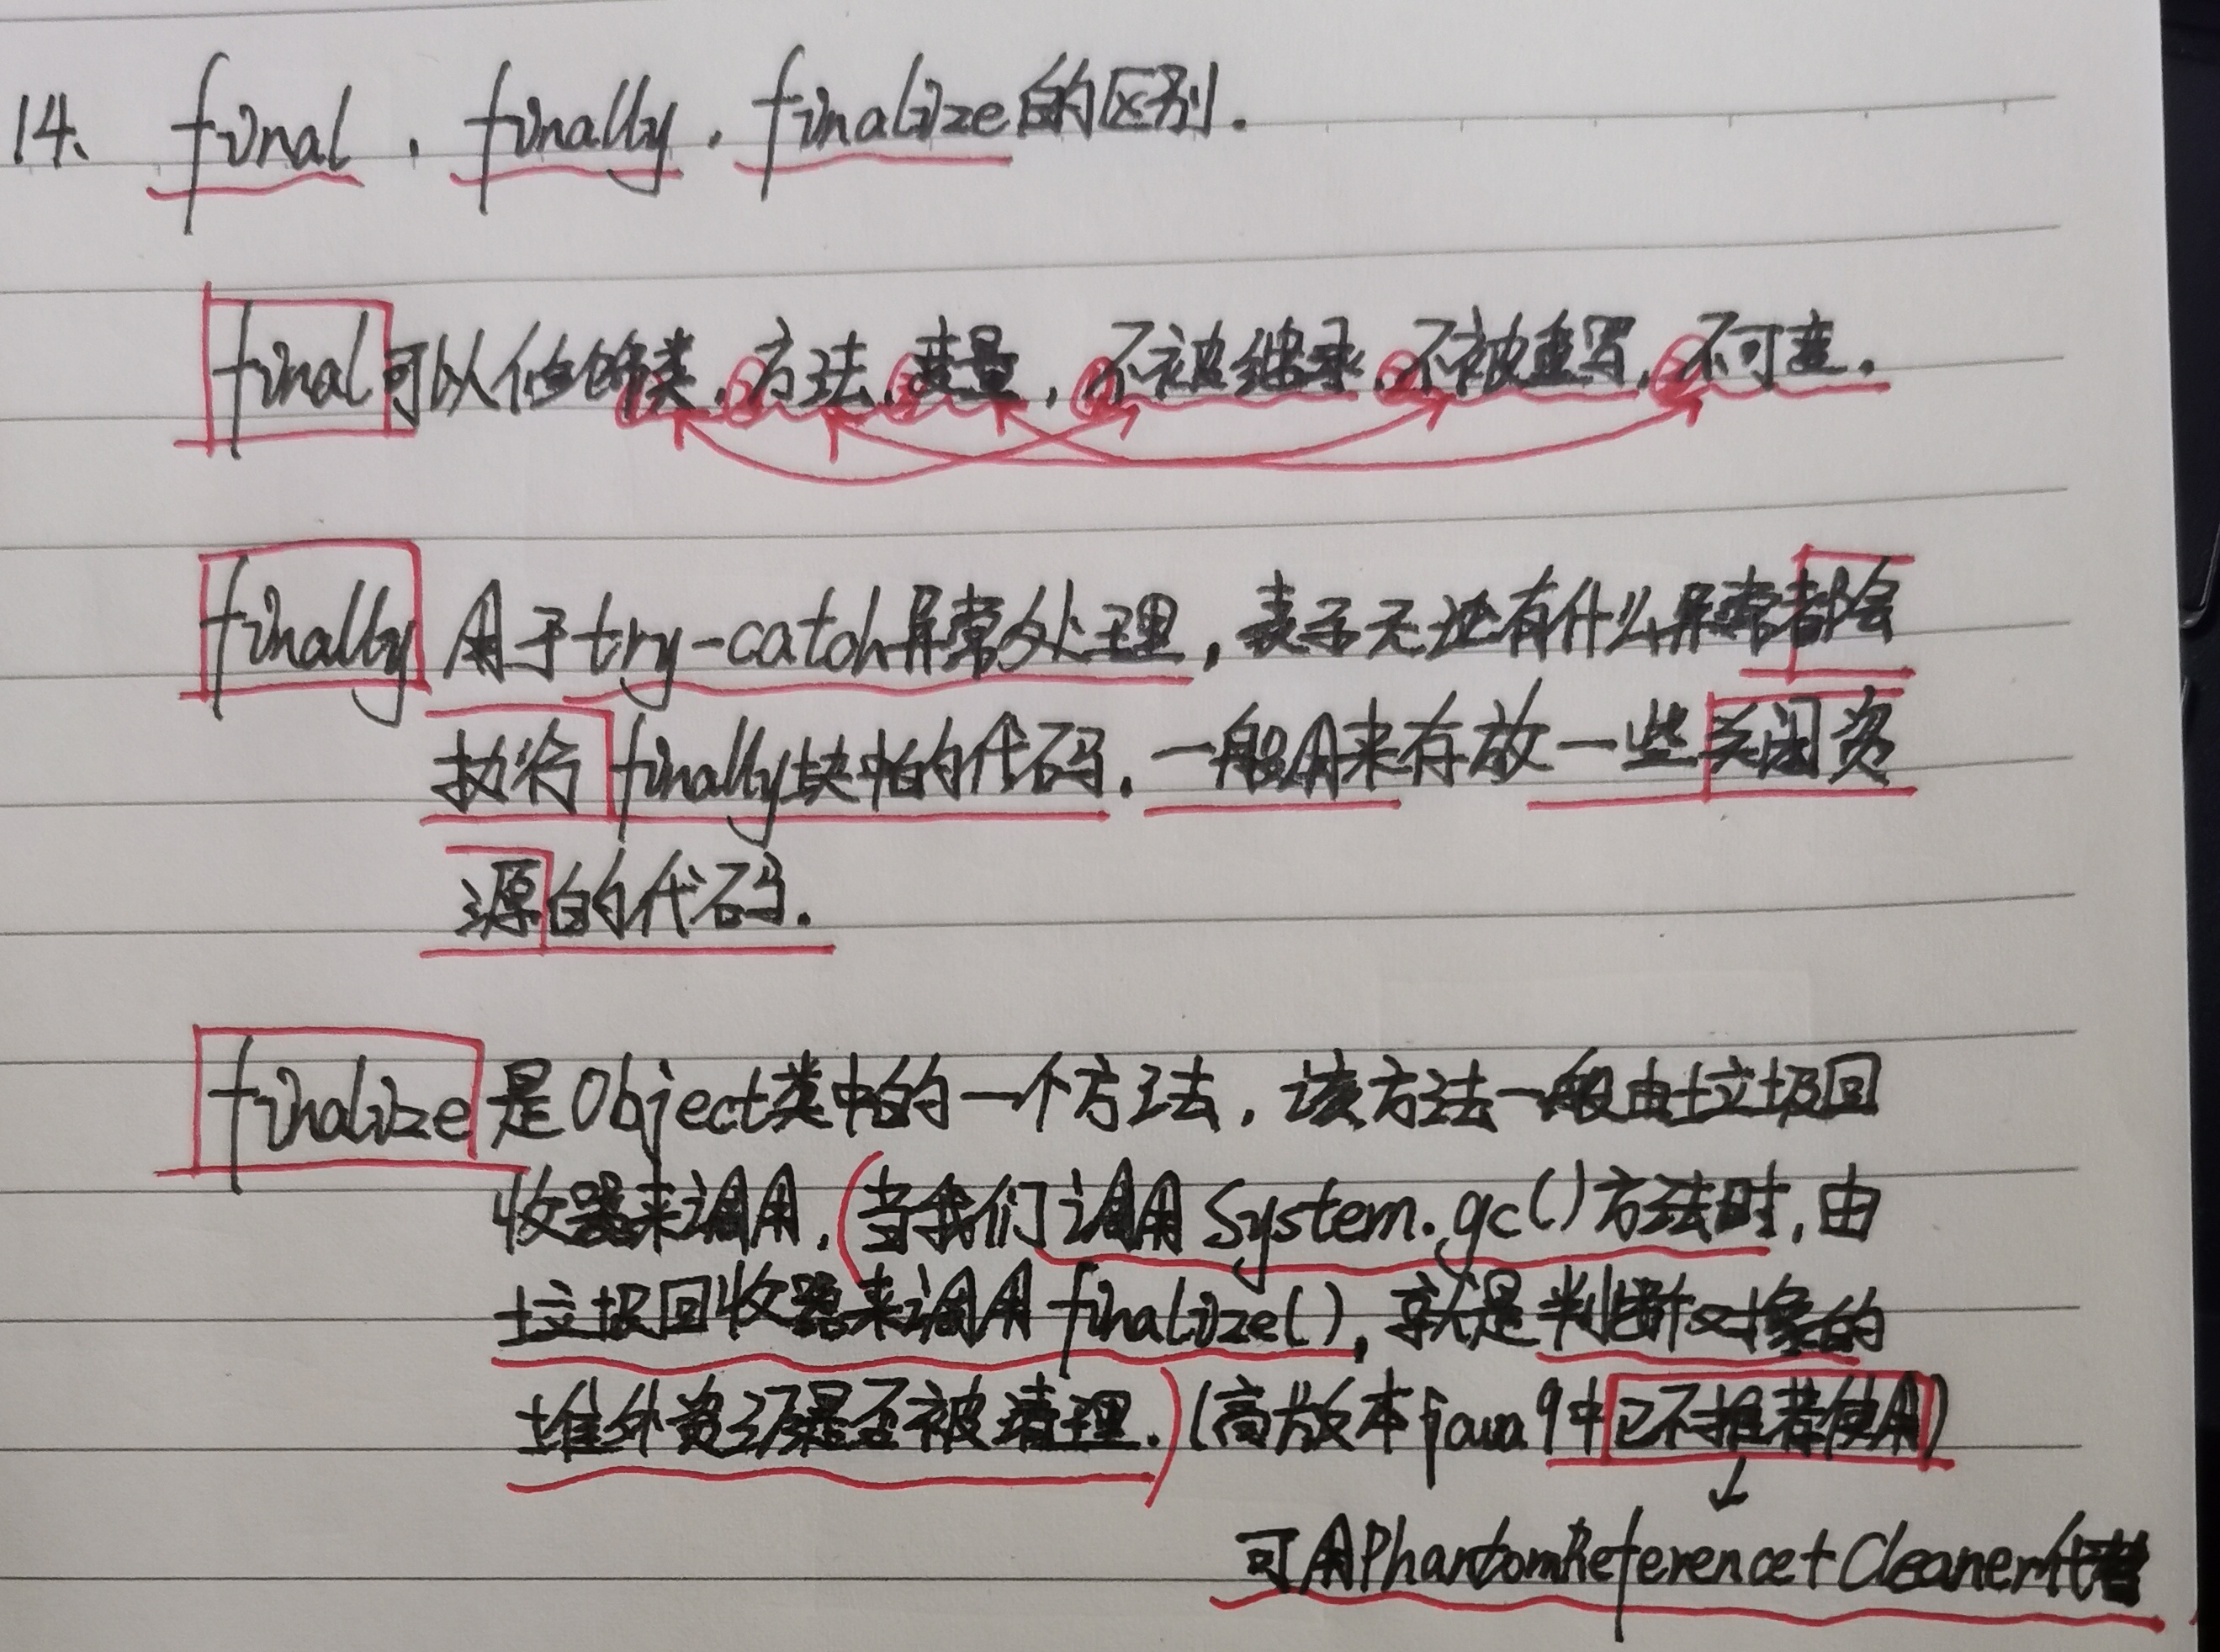 14、final、finally、finalize的区别.
final可以修饰类、方法、变量,不被继承、不被重写、不可变.
finally用于try-catch异常处理,表示无论有什么异常都会
执行finally块中的代码.一般用来存放一些关闭资
源的代码.
finalize是Object类中的一个方法,该方法一般由垃圾回
收器来调用.(当我们调用System.gc()方法时,由
垃圾回收器来调用finalize(),就是判断对象的
堆外资源是否被清理.)(高版本java9中已不推荐使用)
↓
可用PhantomReference+Cleaner代替